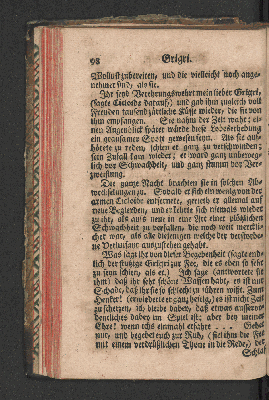 98 Grigri.
Wollust zubereiten, und die vielleicht noch ange-
nehmer sind, als sie.
Ihr seyd Verehrungswehrt mein lieber Grigri,
(sagte Cicloide darauf;) und gab ihm zugleich voll
Freuden tausend zärtliche Küsse wieder, die sie von
ihm empfangen. Sie nahm der Zeit wahr; ei-
nen Augenblick später würde diese Lobeserhebung
ein grausamer Spott gewesen seyn. Als sie auf-
hörete zu reden, schien er ganz zu verschwinden;
sein Zufall kam wieder; er ward ganz unbeweg-
lich vor Schwachheit, und ganz stumm vor Ver-
zweiflung.
Die ganze Nacht brachten sie in solchen Ab-
wechselungen zu. Sobald er sich ein wenig von der
armen Cicloide entfernete, gerieth er allemal auf
neue Begierden, und er kehrte sich niemals wieder
zu ihr, als aufs neue in eine Art einer plötzlichen
Schwachheit zu verfallen, die noch weit merklich-
er war, als alle diejenigen welche der verstorbe-
ne Verlustum auszustehen gehabt.
Was sagt ihr von dieser Begebenheit (sagte end-
lich der stutzige Grigri zur Fee, die es eben so sehr
zu seyn schien, als er.) Ich sage (antwortete sie
ihm) daß ihr sehr schöne Waffen habt, es ist nur
Schade, daß ihr sie so schlecht zu führen wißt. Zum
Henker! (erwiederte er ganz heftig,) es ist nicht Zeit
zu schertzen, ich bleibe dabey, daß etwas ausseror-
dentliches dabey im Spiel ist; aber bey meiner
Ehre! wenn ichs einmahl erfahre . . . Gehet
nur, und begebet euch zur Ruh, (fiel ihm die Fee
mit einem verdrüßlichen Thone in die Rede,) der
Schlaf